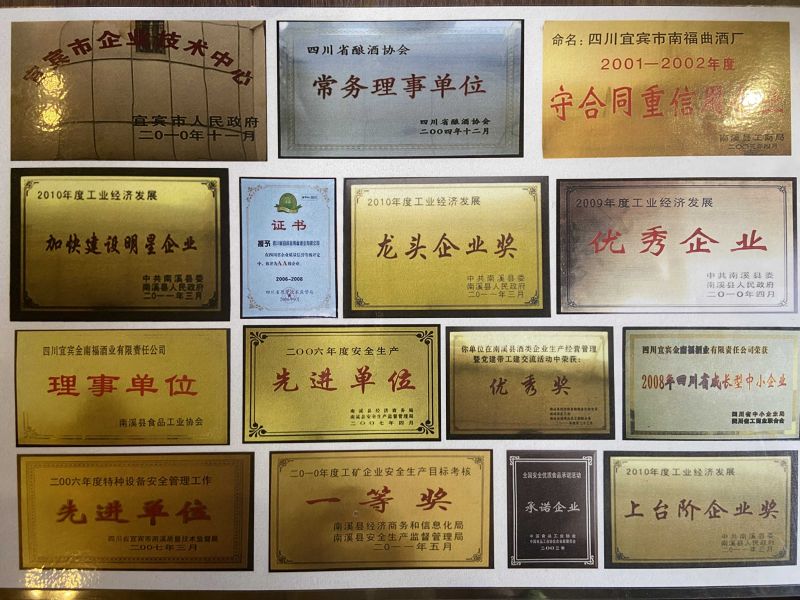 宜宾市企业技术中心
宜宾市人民政府
二〇一〇年十一月
四川省酿酒协会
常务理事单位
四川省酿酒协会
二〇〇四年十二月
命名：四川宜宾市南福曲酒厂
2001—2002年度
守合同重信用企业
南溪县工商局
二〇〇三年四月
2010年度工业经济发展
加快建设明星企业
中共南溪县委
南溪县人民政府
二〇一一年三月
证书
授予
2006-2008
2010年度工业经济发展
龙头企业奖
中共南溪县委
南溪县人民政府
二〇一一年三月
2009年度工业经济发展
优秀企业
中共南溪县委
南溪县人民政府
二〇一〇年四月
四川宜宾金南福酒业有限责任公司
理事单位
南溪县食品工业协会
二〇〇六年度安全生产
先进单位
南溪县经济商务局
南溪县安全生产监督管理局
二〇〇七年四月
你单位在南溪县酒类企业生产经营管理
暨党建带工建交流活动中荣获：
优秀奖
四川宜宾金南福酒业有限责任公司荣获
2008年四川省成长型中小企业
四川省中小企业局
四川省工商业联合会
二〇〇六年度特种设备安全管理工作
先进单位
四川省宜宾市南溪质量技术监督局
二〇〇七年三月
二〇一〇年度工矿企业安全生产目标考核
一等奖
南溪县经济商务和信息化局
南溪县安全生产监督管理局
二〇一一年五月
全国安全优质食品承诺活动
承诺企业
中国食品工业协会
二〇〇三年
2010年度工业经济发展
上台阶企业奖
中共南溪县委
南溪县人民政府
二〇一一年三月